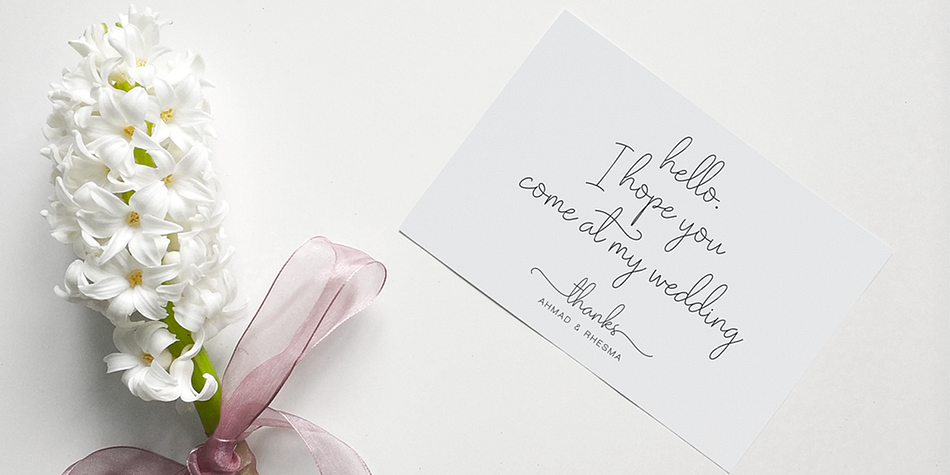 hello.
I hope you
come at my wedding
thanks
AHMAD & RHESMA